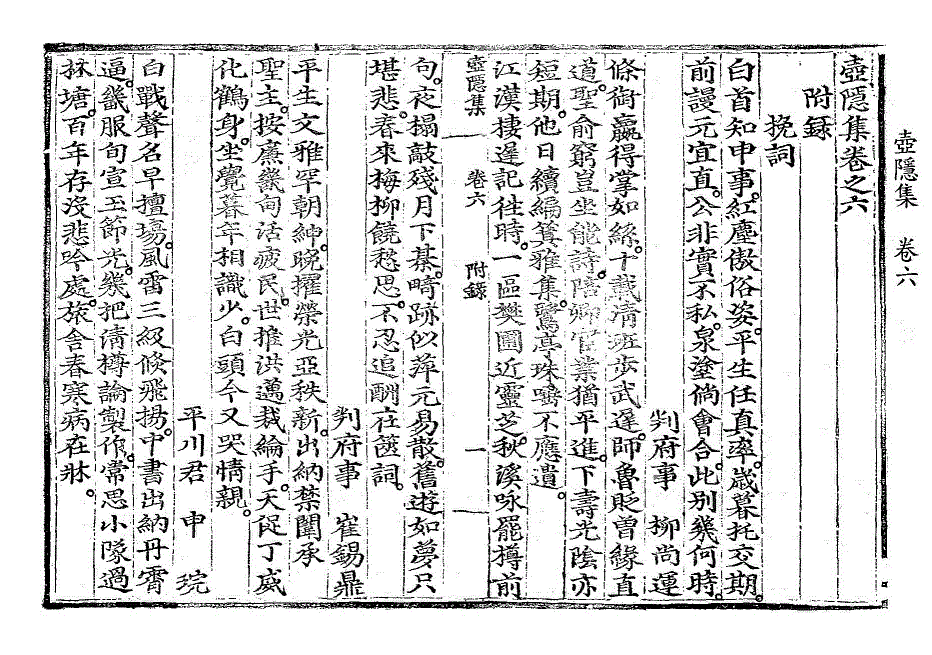 壺隱集 卷六
壺隱集卷之六
附錄
挽詞
白首知申事。紅塵傲俗姿。平生任眞率。歲暮托交期。
前謾元宜直。公非實不私。泉塗倘會合。此別幾何時。
判府事 柳尙運
條衘贏得掌如絲。十載淸班步武遲。師魯貶曾緣直
道。聖俞窮豈坐能詩。陪卿官業猶平進。下壽光陰亦
短期。他日續編箕雅集。鷺亭珠嚼不應遺
江漢棲遲記往時。一區樊圃近靈芝。秋溪咏罷樽前
壺隱集 卷六 附錄 一
句。夜搨敲殘月下棊。疇跡似萍元易散。舊遊如夢只
堪悲。春來梅柳饒愁思。不忍追酬在篋詞。
判府事 崔錫鼎
平生文雅罕朝紳。晩擢榮光亞秩新。出納禁闈承
聖主。按廉畿甸活疲民。世推洪邁裁綸手。天促丁威
化鶴身。坐覺暮年相識少。白頭今又哭情親。
平川君 申 琓
白戰聲名早擅場。風雷三級倏飛揚。中書出納丹霄
逼。畿服旬宣玉節光。幾把淸樽論製作。常思小隊過
林塘。百年存沒悲吟處。旅舍春寒病在牀。